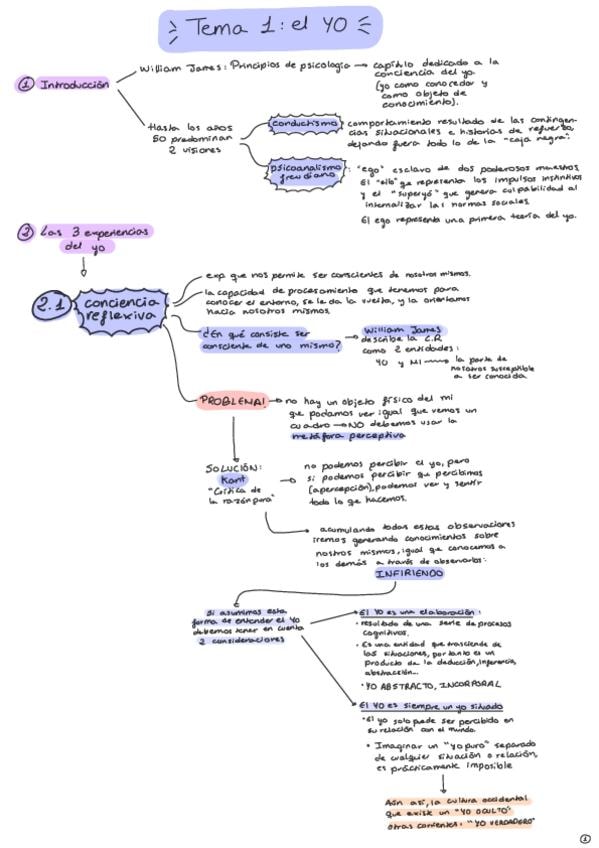 Tema 1: el YO
① Introducción
William James: Principios de psicología → capítulo dedicado a la
conciencia del yo
(yo como conocedor y
como objeto de
conocimiento).
Hasta los años
50 predominan
2 visiones
conductismo: comportamiento resultado de las contingen-
cias situacionales e historias de refuerzo,
dejando fuera todo lo de la "caja negra".
psicoanalismo
freudiano
: "ego" esclavo de dos poderosos maestros.
El "ello" que representa los impulsos instintivos
y el "superyó" que genera culpabilidad al
internalizar las normas sociales.
El ego representa una primera teoría del yo.
② Las 3 experiencias
del yo
2.1 conciencia
reflexiva
exp que nos permite ser conscientes de nosotros mismos.
la capacidad de procesamiento que tenemos para
conocer el entorno, se le da la vuelta, y la orientamos
hacia nosotros mismos.
¿En qué consiste ser
consciente de uno mismo?
William James
describe la C.R
como 2 entidades:
YO y MI → la parte de
nosotros susceptible
a ser conocida
PROBLEMA!
no hay un objeto físico del mi
que podamos ver igual que vemos un
cuadro → NO debemos usar la
metáfora perceptiva
SOLUCIÓN:
Kant
"Crítica de
la razón pura"
no podemos percibir el yo, pero
si podemos percibir que percibimos
(apercepción), podemos ver y sentir
todo lo que hacemos.
acumulando todas estas observaciones
iremos generando conocimientos sobre
nosotros mismos, igual que conocemos a
los demás a través de observarlos:
INFIRIENDO
Si asumimos esta
forma de entender el yo
debemos tener en cuenta
2 consideraciones
El YO es una elaboración:
• resultado de una serie de procesos
cognitivos.
• Es una entidad que trasciende de
las situaciones, por tanto es un
producto de la deducción, inferencia,
abstracción...
• YO ABSTRACTO, INCORPORAL
El YO es siempre un yo situado
• El yo solo puede ser percibido en
su relación con el mundo.
• Imaginar un "yo puro" separado
de cualquier situación o relación,
es prácticamente imposible
Aún así, la cultura occidental
que existe un "YO OCULTO"
otras corrientes: "YO VERDADERO"
①